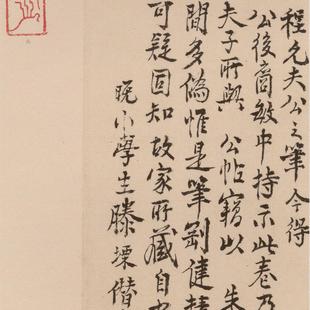 程允夫公之筆今得
公後裔敏中持示此卷乃
夫子所與公帖竊以朱
間多偽惟是筆剄健
可疑固知故家所藏自
晚小學生滕塛僣